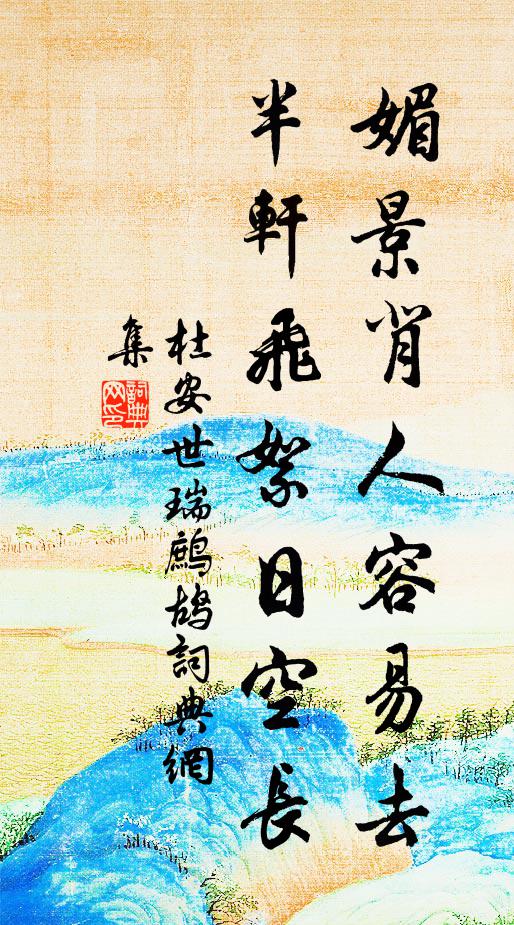 媚景背人容易去
半軒飛絮日空長
杜安世瑞鷓鴣詞典網
集
詞典
网印